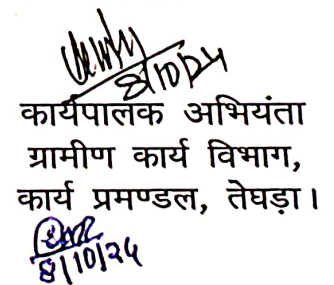 8/10/24
कार्यपालक अभियंता
ग्रामीण कार्य विभाग,
कार्य प्रमण्डल, तेघड़ा।
8/10/24